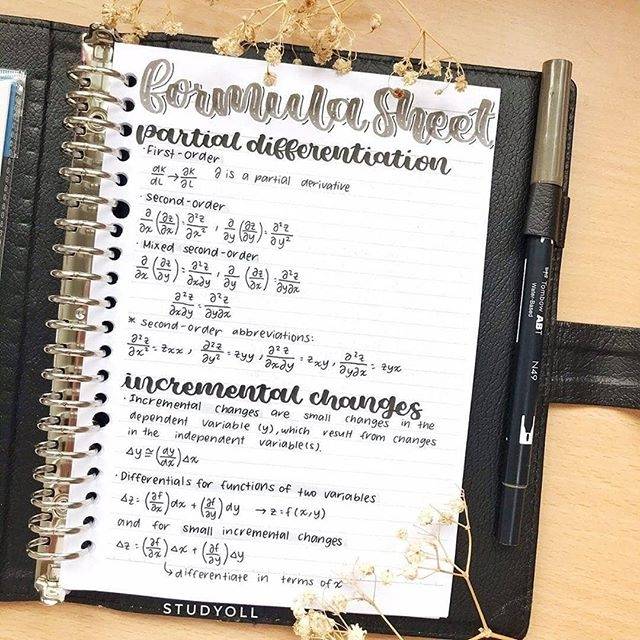 formula sheet
partial differentiation
· First-order
dK/dL → ∂K/∂L ∂ is a partial derivative
· Second-order
∂/∂x (∂z/∂x) = ∂²z/∂x² , ∂/∂y (∂z/∂y) = ∂²z/∂y²
· Mixed second-order
∂/∂x (∂z/∂y) = ∂²z/∂x∂y , ∂/∂y (∂z/∂x) = ∂²z/∂y∂x
∂²z/∂x∂y = ∂²z/∂y∂x
* Second-order abbreviations:
∂²z/∂x² = zxx , ∂²z/∂y² = zyy , ∂²z/∂x∂y = zxy , ∂²z/∂y∂x = zyx
incremental changes
· Incremental changes are small changes in the
dependent variable (y), which result from changes
in the independent variable(s).
Δy ≅ (dy/dx) Δx
· Differentials for functions of two variables
Δz = (∂f/∂x) dx + (∂f/∂y) dy → z = f(x,y)
and for small incremental changes
Δz = (∂f/∂x) Δx + (∂f/∂y) Δy
↳ differentiate in terms of x
STUDYOLL
Tombow ABT
Water-Based
N49